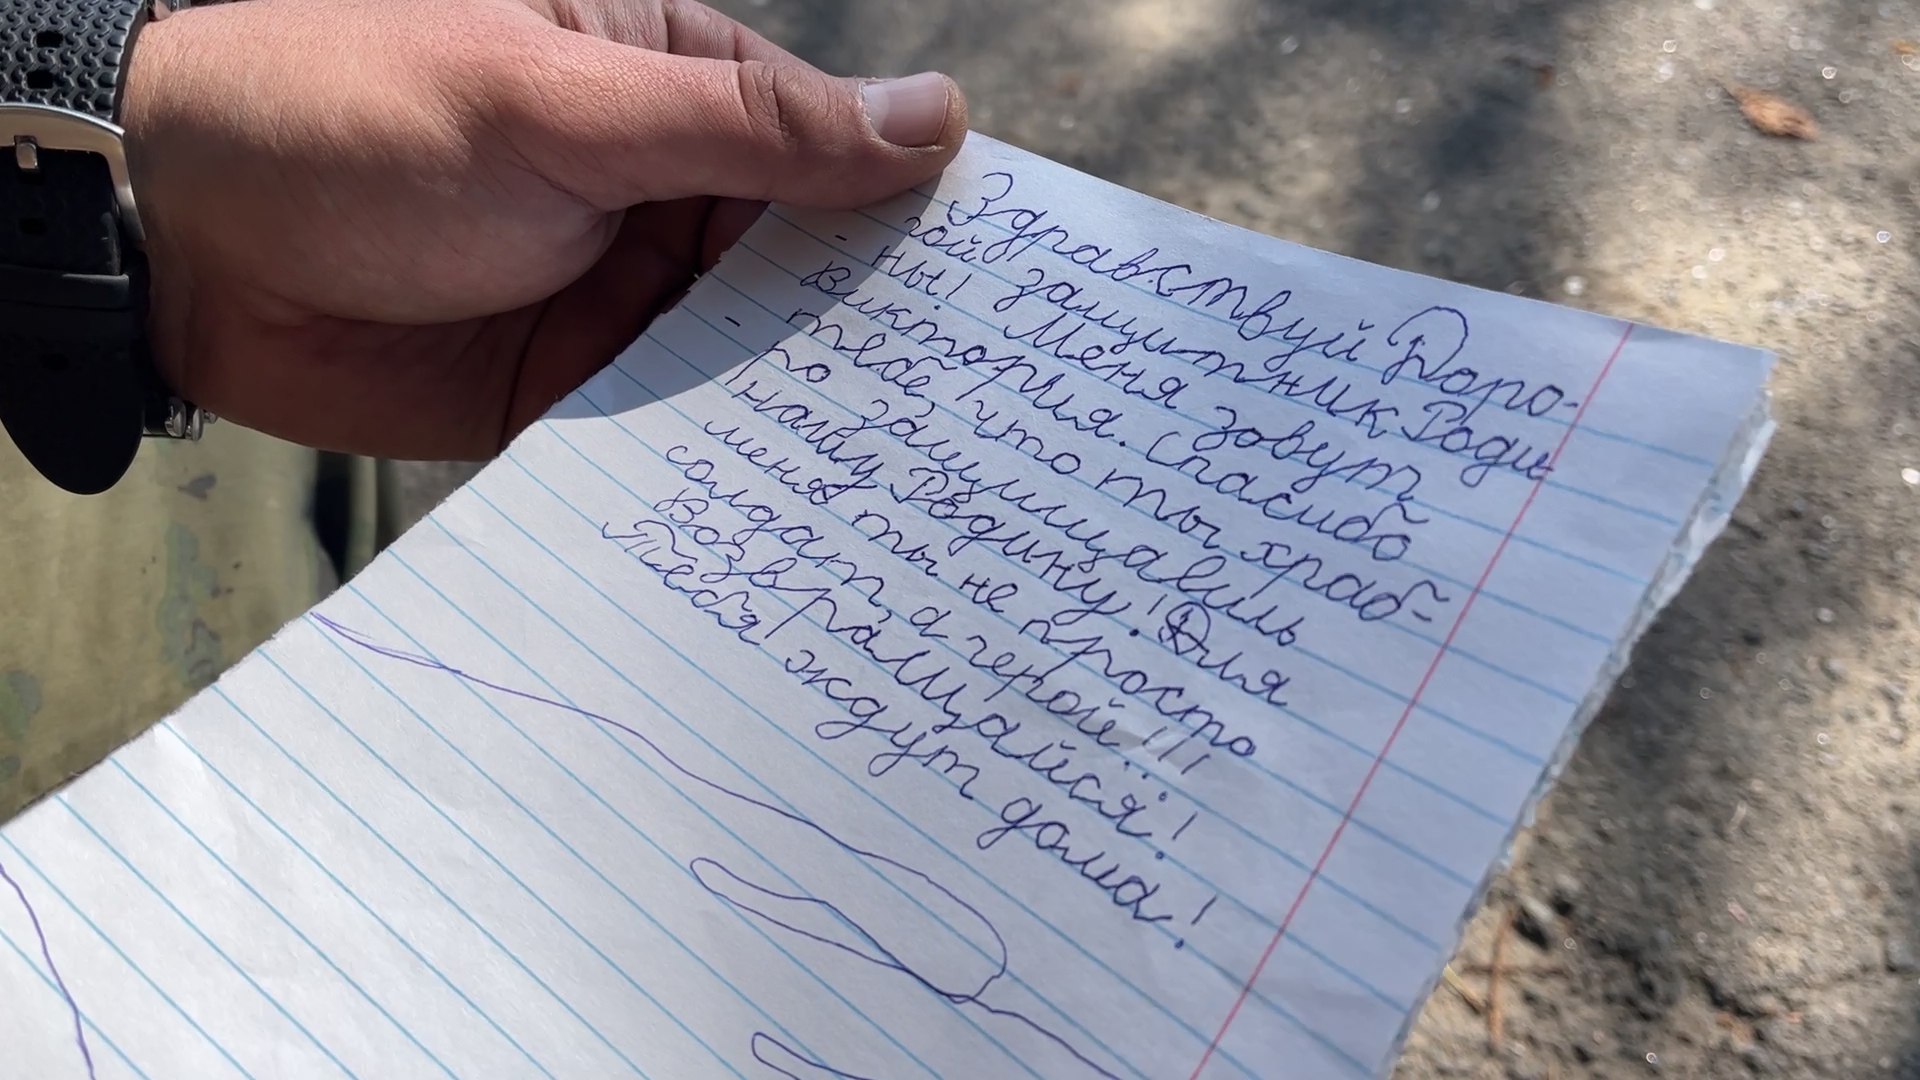 Здравствуй Доро-
гой защитник Роди
- ны! Меня зовут
Виктория. Спасибо
тебе, что ты храб-
- ро защищаешь
нашу Родину! Для
меня ты не просто
солдат, а герой!!!
Возвращайся!
Тебя ждут дома!